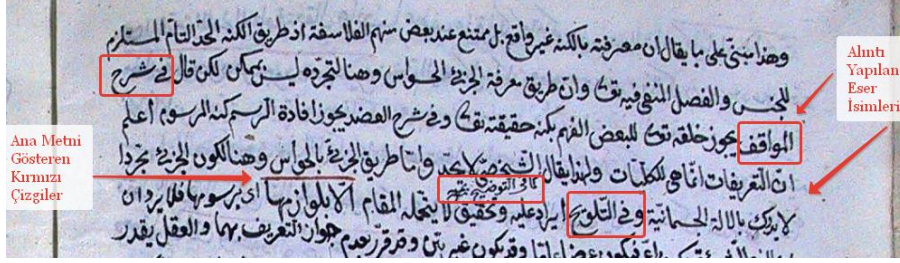 وهذا مبنى على ما يقال ان معرفته بالكنه غير واقع بل ممتنع عند بعض منهم الفلاسفة اذ طريق الكنه الحد التام المستلزم
للجنس والفصل المنفى فيه تعالى وان طريق معرفة الجزئى الحواس وهنا لتجرده ليس يمكن لكن قال فى شرح
المواقف يجوز خلقه تعالى للبعض الفهم بكنه حقيقته تعالى وفى شرح العضد يجوز افادة الرسم كنه المرسوم أعلم
ان التعريفات انما هى للكليات ولذا يقال الشخص لا يحد وانما طريق الجزئى بالحواس وهنا لكون الجزئى مجردا
كما فى التوضيح
لا يدرك بالالة الجسمانية وفى التلويح ايراد عليه وتحقيق لا يتحمله المقام الا بلوازمها اى برسومها فلا يرد ان
وقد يكون غير بين وقد قرر عدم جواز التعريف بهما والعقل يقدر
Alıntı
Yapılan
Eser
İsimleri
Ana Metni
Gösteren
Kırmızı
Çizgiler